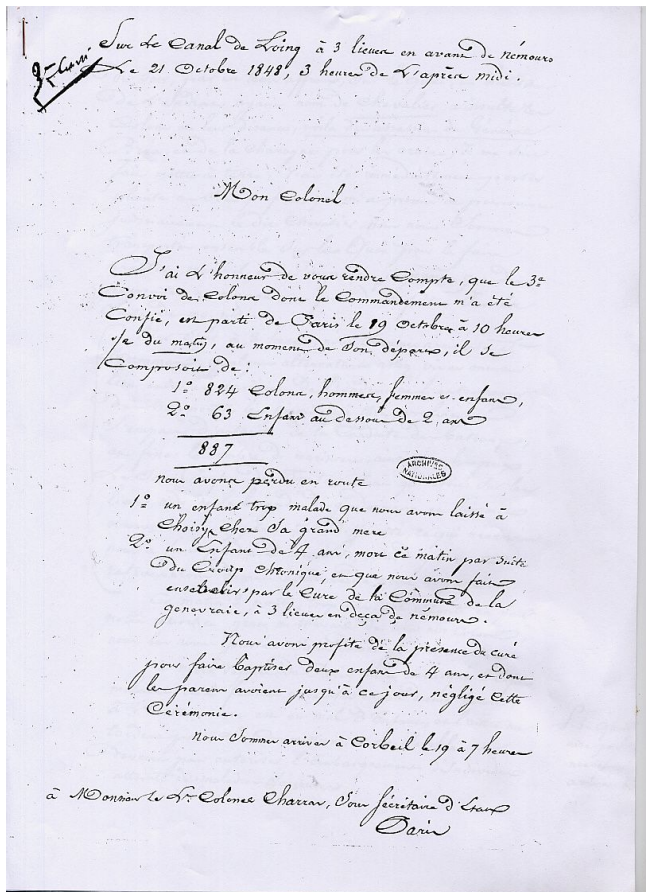 Sur le Canal de Loing à 3 lieues en avant de némours
Le 21 Octobre 1848, 3 heures de L'après midi.
Mon Colonel
J'ai L'honneur de vous rendre Compte, que le 3e
Convoi de Colons dont le Commandement m'a été
Confié, est parti de Paris le 19 Octobre à 10 heures
du matin, au moment de Son départ, il se
Composoit de :
1° 824 Colons, hommes, femmes et enfans,
2° 63 Enfans au dessous de 2 ans
887
ARCHIVES
NATIONALES
nous avons perdu en route
1° un enfant trop malade que nous avons laissé à
Choisy chez Sa grand mere
2° un Enfant de 4 ans, mort ce matin par suite
du Croup Chronique et que nous avons fait
ensevelir par le Curé de la Commune de la
genevraie, à 3 lieues en deça de némours.
Nous avons profité de la présence du curé
pour faire baptiser deux enfans de 4 ans, et dont
les parens avoient jusqu'à ce jour, négligé Cette
Cérémonie.
Nous Sommes arrivés à Corbeil le 19 à 7 heures
à Monsieur le Lt Colonel Charras, Sous Sécrétaire d'Etat
Paris